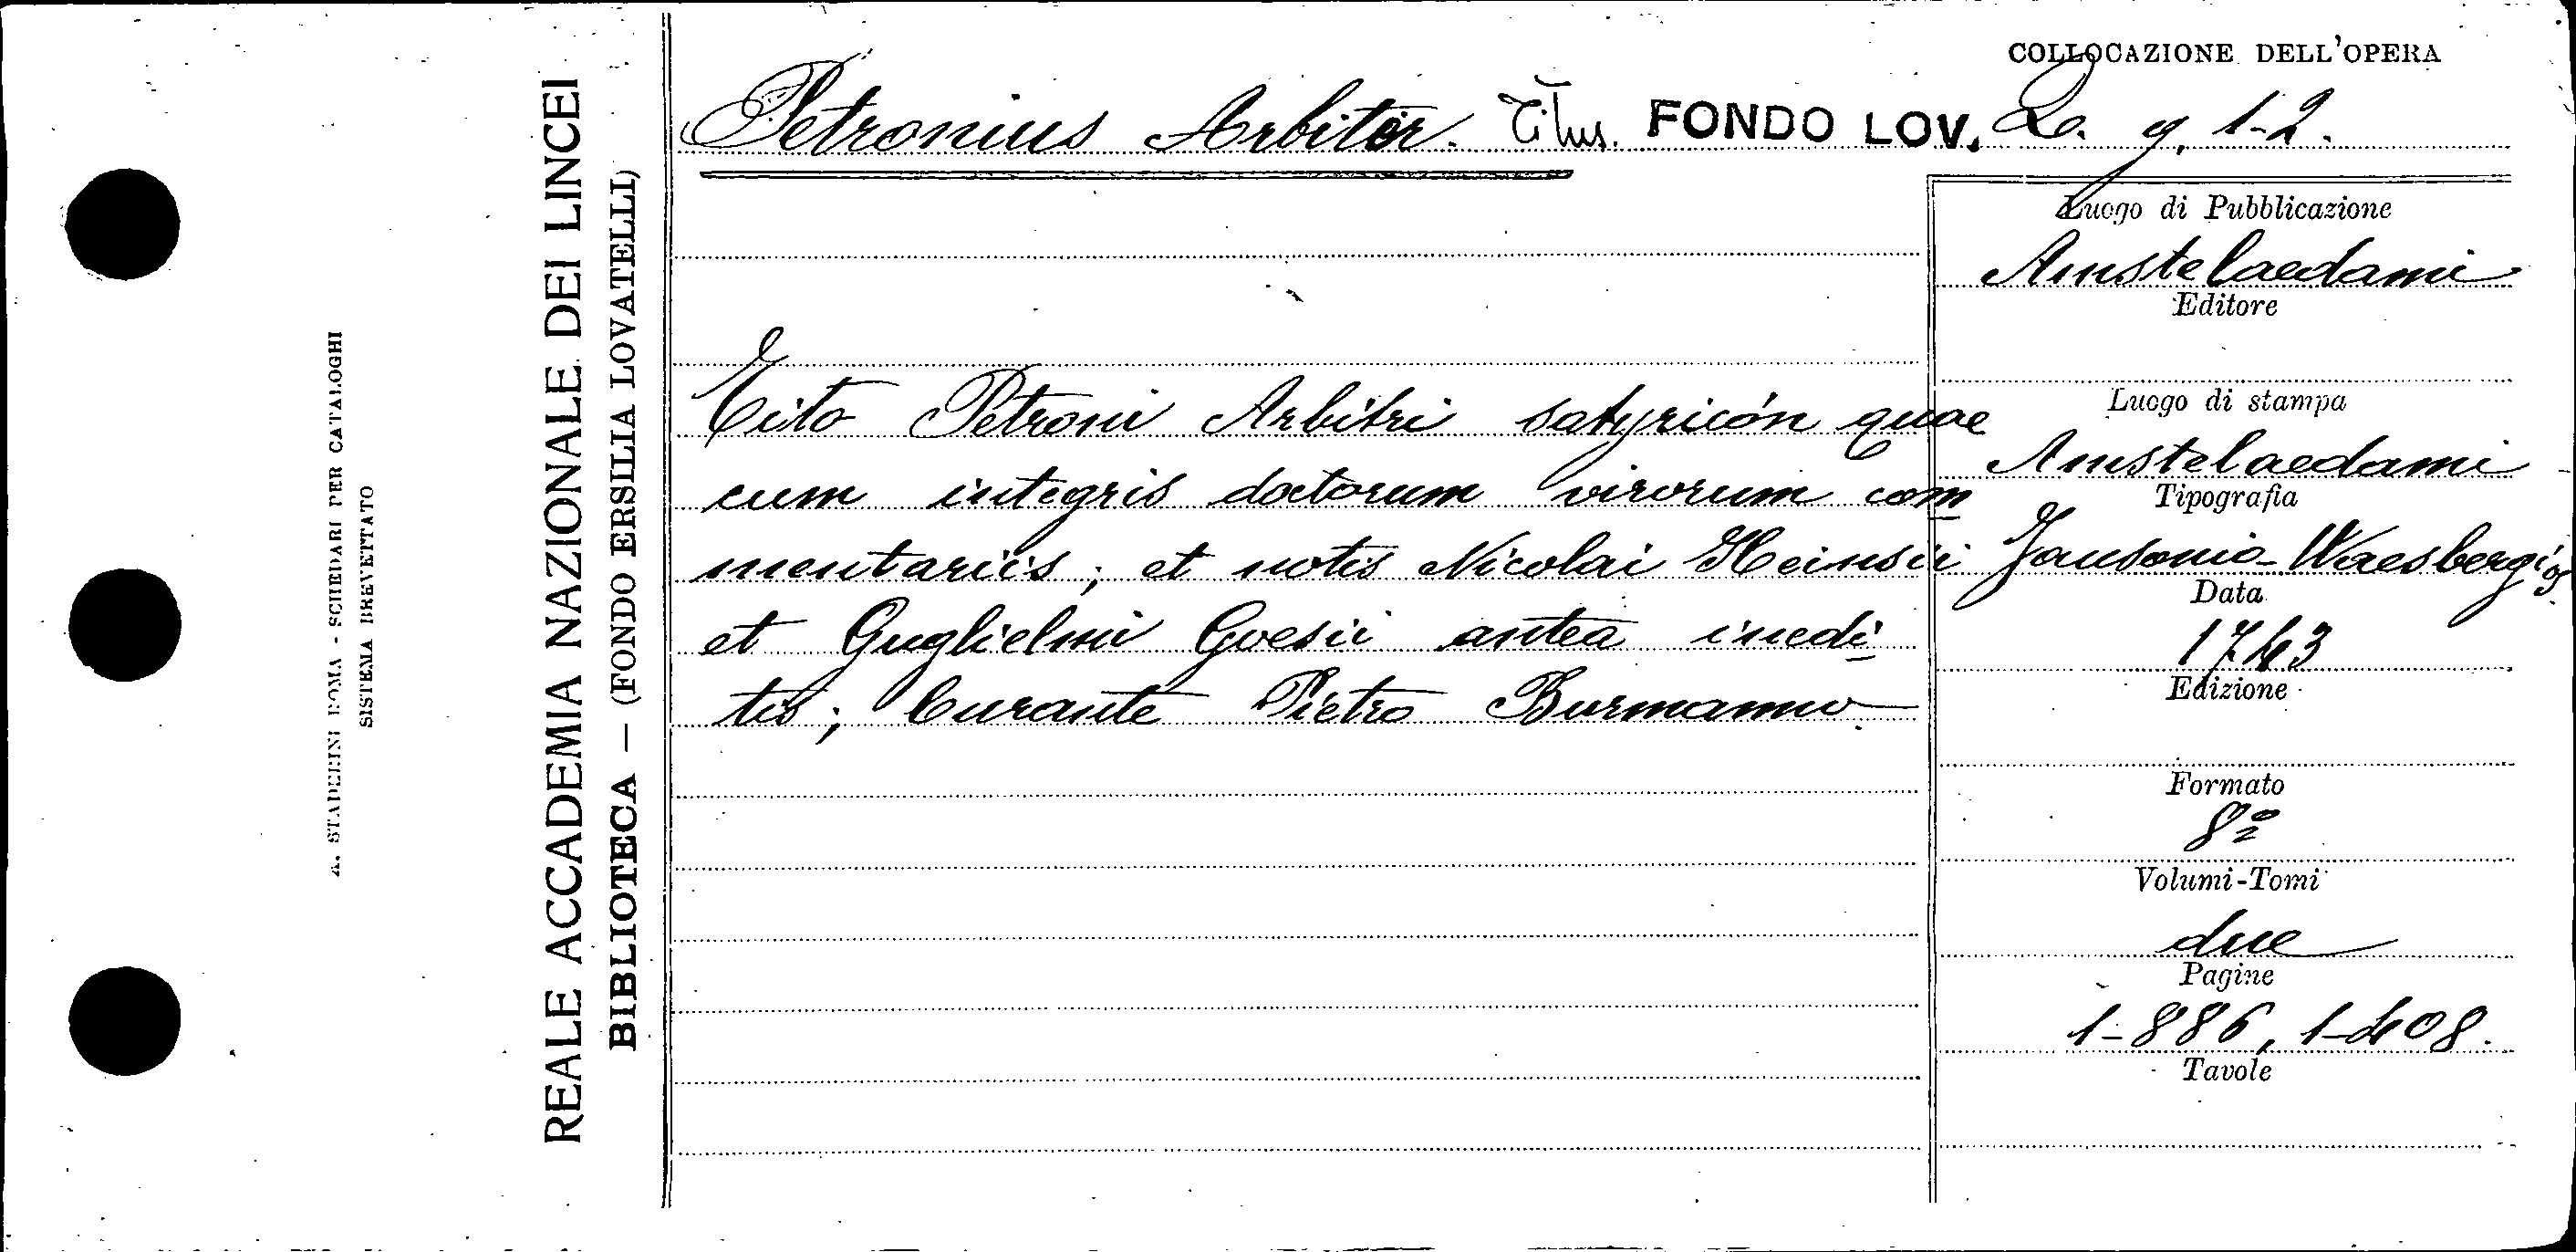 COLLOCAZIONE DELL'OPERA
Petronius Arbiter. Titus. FONDO LOV. 20. g. 1-2.
Tito Petroni Arbitri satyricón quae
cum integris doctorum virorum com
mentariis; et notis Nicolai Heinsii
et Guglielmi Goesii antea inedi
tis; Curante Pietro Burmanno
Luogo di Pubblicazione
Amstelaedami
Editore
Luogo di stampa
Amstelaedami
Tipografia
Jansonio-Waesbergios
Data
1743
Edizione
Formato
8º
Volumi-Tomi
due
Pagine
1-886, 1-408.
Tavole
REALE ACCADEMIA NAZIONALE DEI LINCEI
BIBLIOTECA — (FONDO ERSILIA LOVATELLI)
A. STADERINI ROMA - SCHEDARI PER CATALOGHI
SISTEMA BREVETTATO